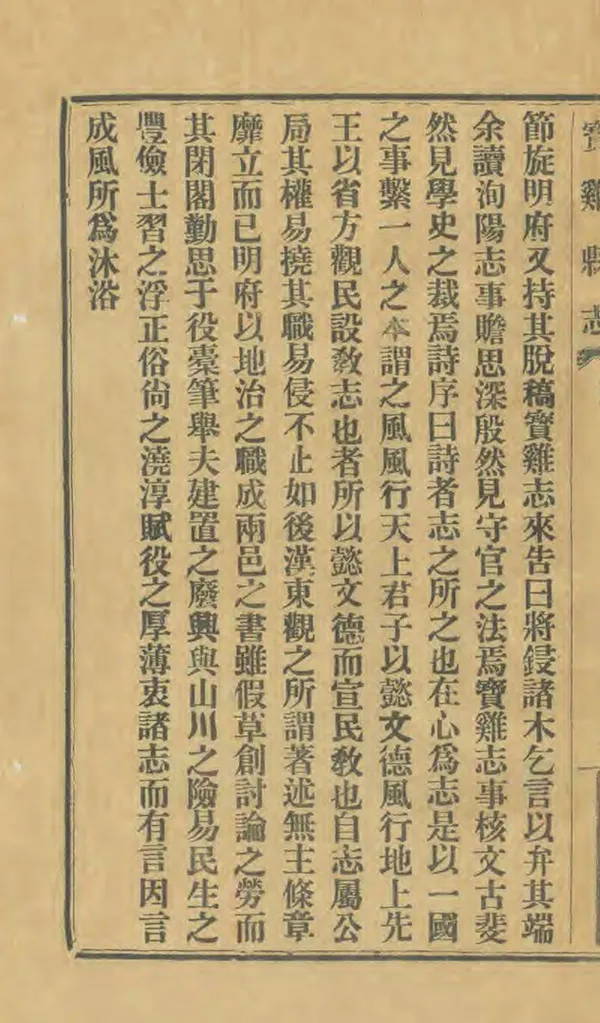 寶雞縣志
節旋明府又持其脫稿寶雞志來告曰將鋟諸木乞言以弁其端
余讀洵陽志事贍思深殷然見守官之法焉寶雞志事核文古斐
然見學史之裁焉詩序曰詩者志之所之也在心爲志是以一國
之事繫一人之本謂之風風行天上君子以懿文德風行地上先
王以省方觀民設敎志也者所以懿文德而宣民敎也自志屬公
局其權易撓其職易侵不止如後漢東觀之所謂著述無主條章
靡立而已明府以地治之職成兩邑之書雖假草創討論之勞而
其閉閣勤思于役橐筆舉夫建置之廢興與山川之險易民生之
豐儉士習之浮正俗尙之澆淳賦役之厚薄衷諸志而有言因言
成風所爲沐浴